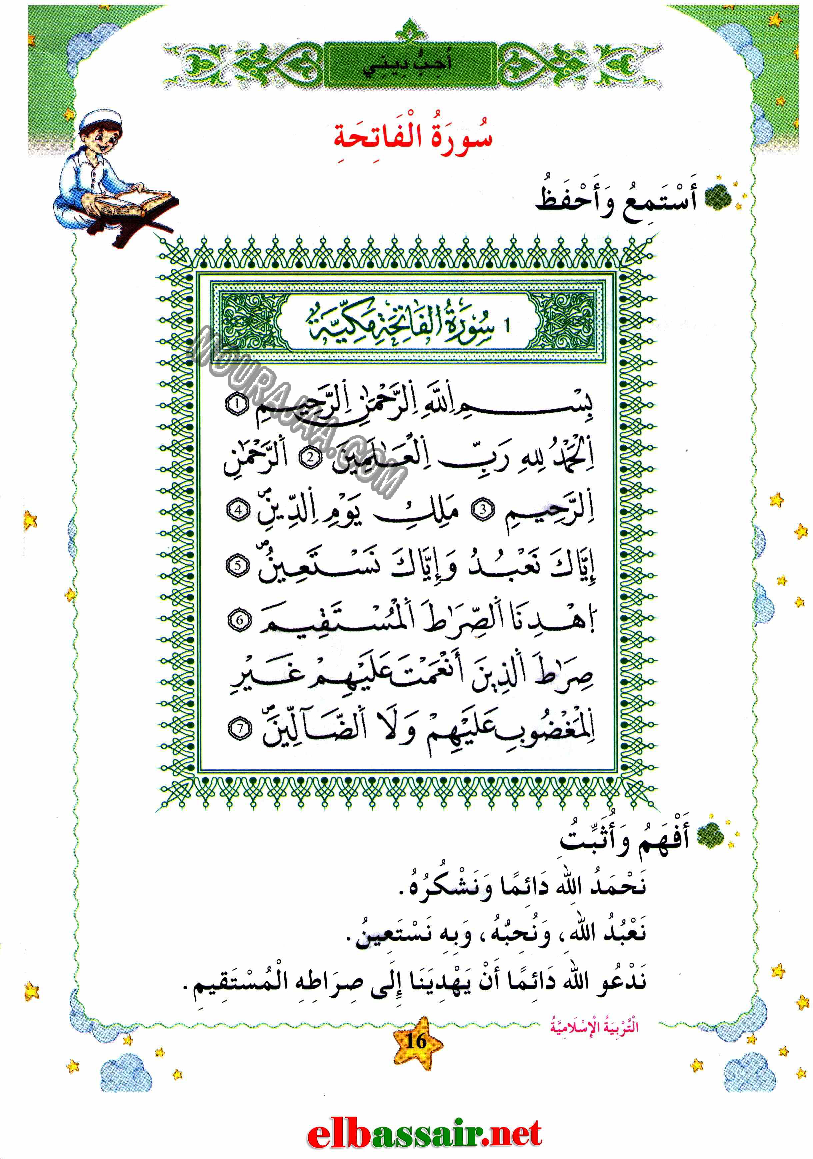 أُحِبُّ دِينِي
سُورَةُ الْفَاتِحَةِ
أَسْتَمِعُ وَأَحْفَظُ
1 سُورَةُ الْفَاتِحَةِ مَكِّيَّةٌ
بِسْمِ اِ۬للَّهِ اِ۬لرَّحْمَٰنِ اِ۬لرَّحِيمِ 1
اِ۬لْحَمْدُ لِلهِ رَبِّ اِ۬لْعَٰلَمِينَ 2 اَ۬لرَّحْمَٰنِ
اِ۬لرَّحِيمِ 3 مَلِكِ يَوْمِ اِ۬لدِّينِ 4
إِيَّاكَ نَعْبُدُ وَإِيَّاكَ نَسْتَعِينُ 5
اَ۪هْدِنَا اَ۬لصِّرَٰطَ اَ۬لْمُسْتَقِيمَ 6
صِرَٰطَ اَ۬لذِينَ أَنْعَمْتَ عَلَيْهِمْ غَيْرِ
اِ۬لْمَغْضُوبِ عَلَيْهِمْ وَلَا اَ۬لضَّآلِّينَ 7
MOURAJAA.COM
أَفْهَمُ وَأُثَبِّتُ
نَحْمَدُ اللهَ دَائِمًا وَنَشْكُرُهُ.
نَعْبُدُ اللهَ، وَنُحِبُّهُ، وَبِهِ نَسْتَعِينُ.
نَدْعُو اللهَ دَائِمًا أَنْ يَهْدِيَنَا إِلَى صِرَاطِهِ الْمُسْتَقِيمِ.
التَّرْبِيَةُ الْإِسْلَامِيَّةُ
16
elbassair.net